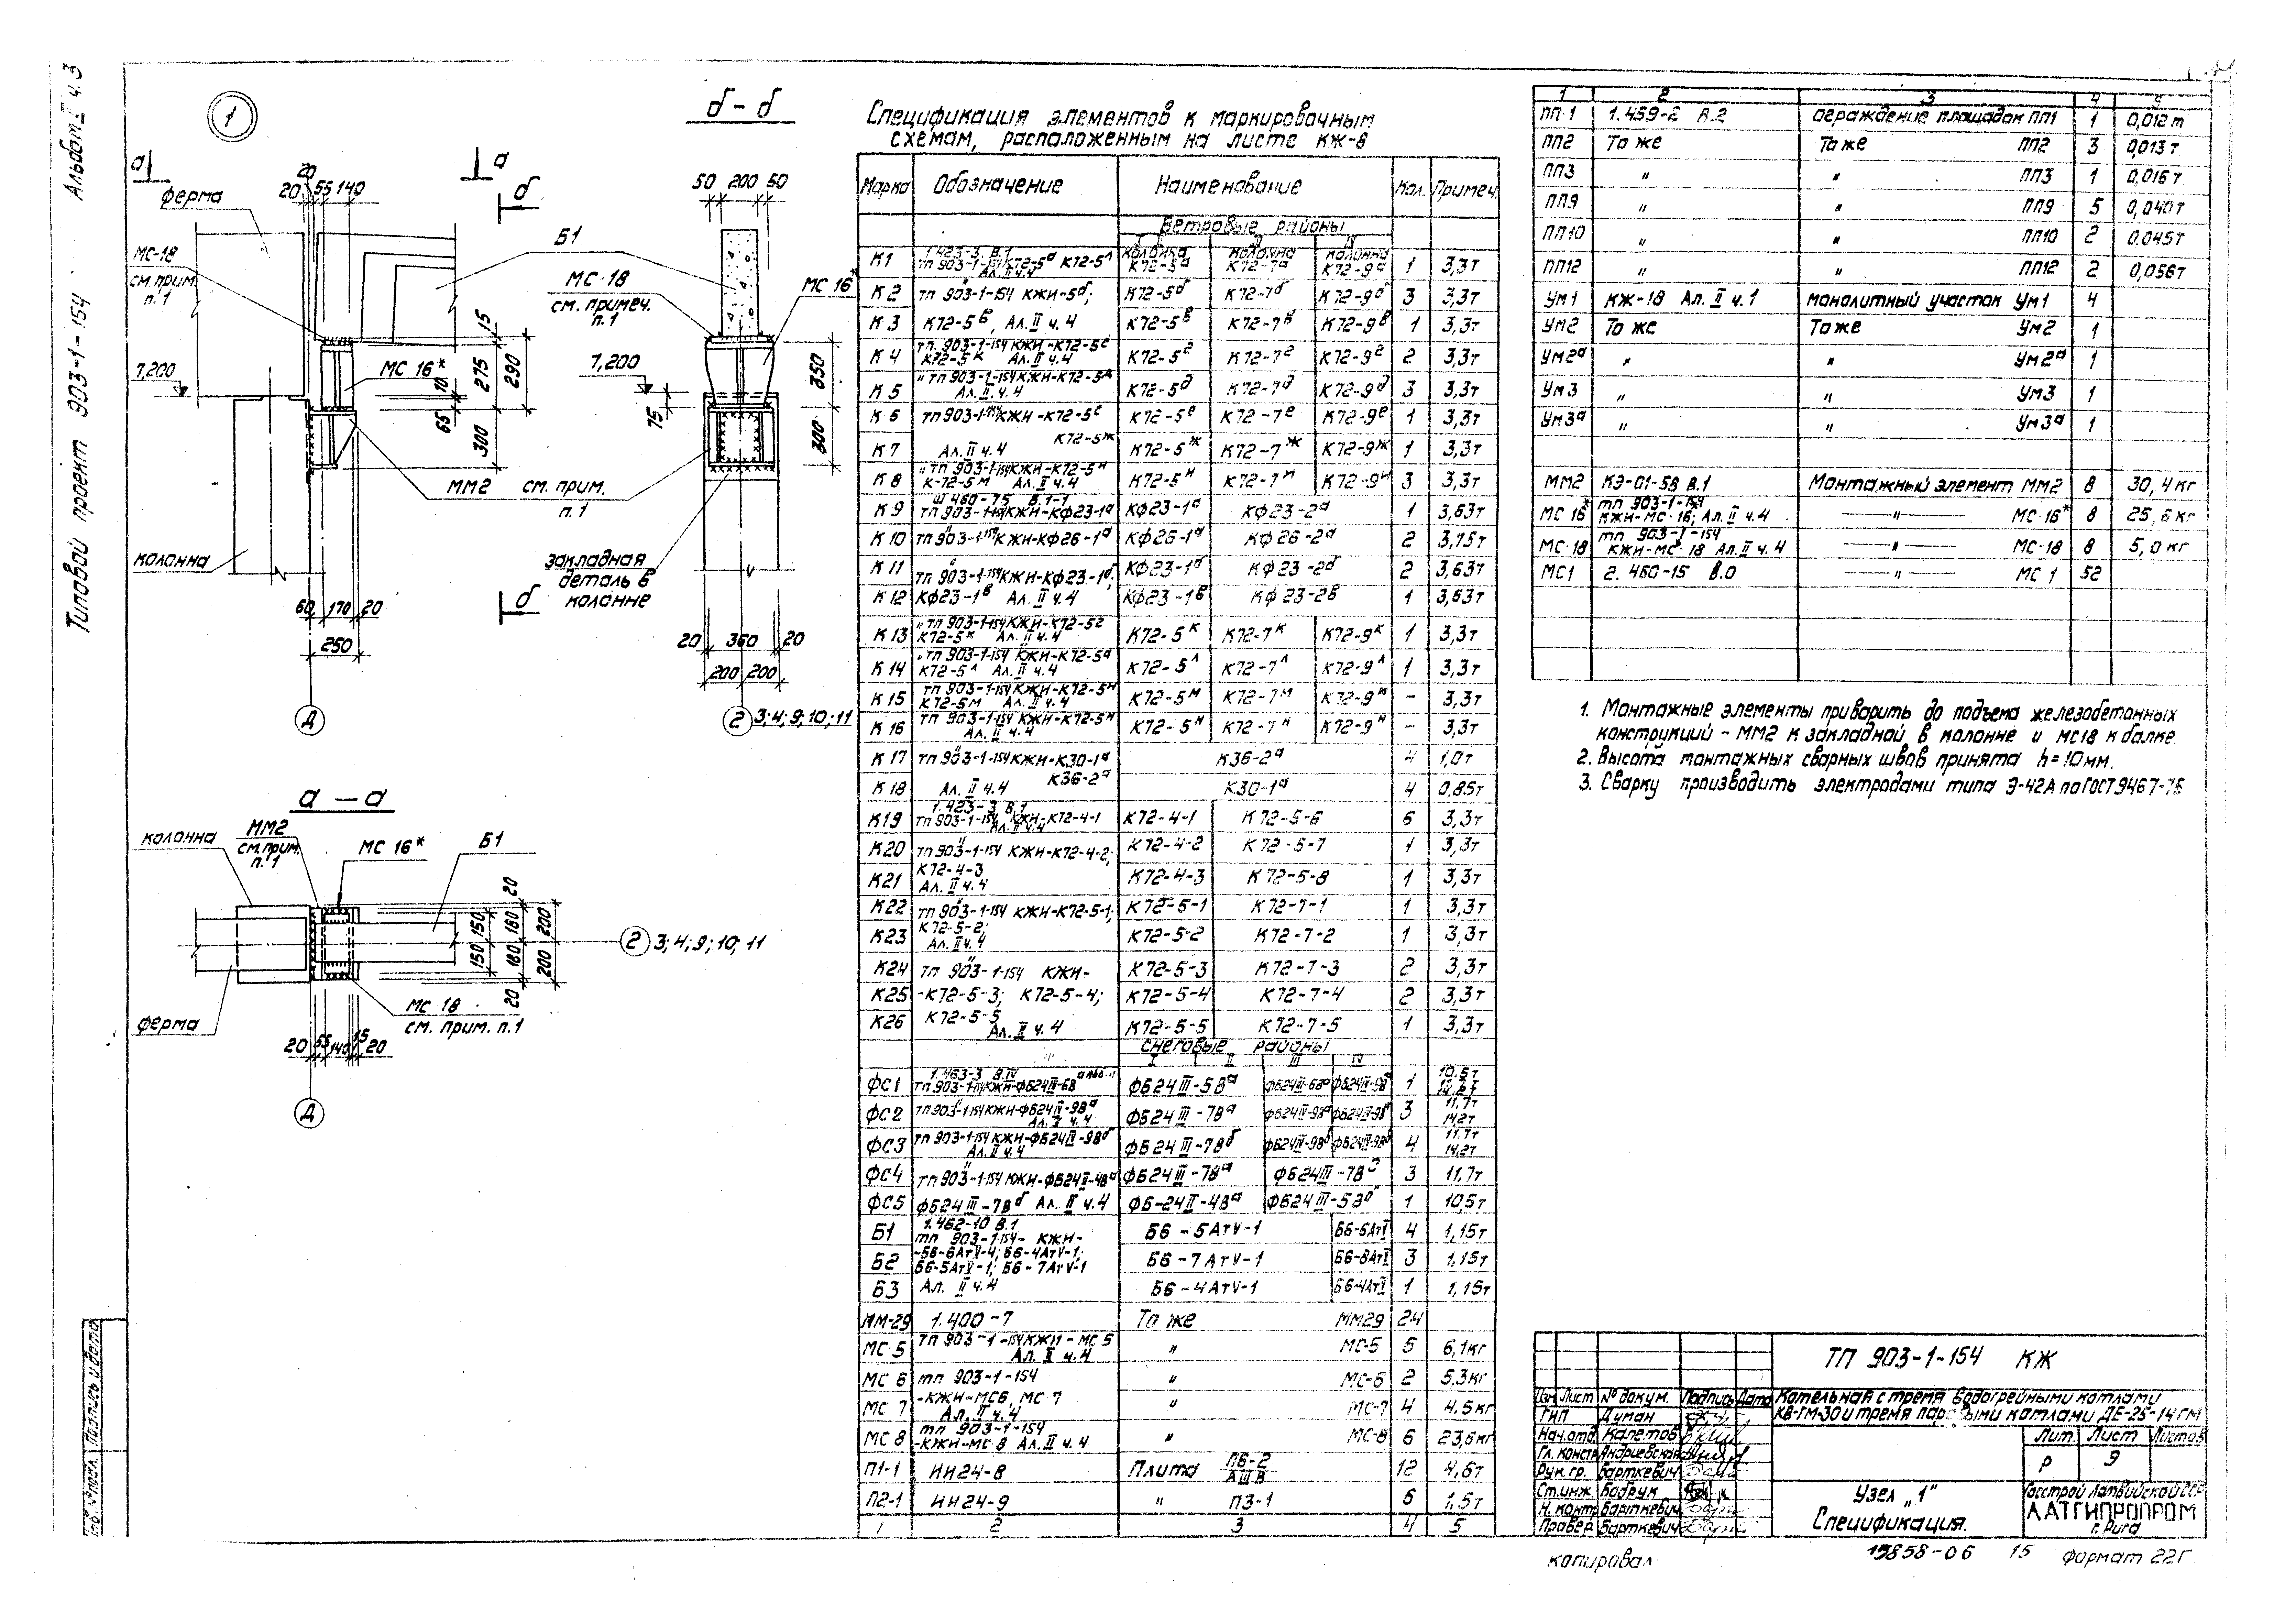 Типовой проект 903-1-154 Альбом II ч.3
1
а а
б
20
20 55 140
ферма
МС-18
см. прим.
п. 1
7,200
Б1
МС 16*
15
275
290
10
65
300
ММ2 см. прим.
п. 1
колонна
60 170 20
250
Д
б
б - б
50 200 50
МС-18
см. примеч.
п. 1
МС 16*
7,200
75
350
300
закладная
деталь в
колонне
20 360 20
200 200
2 3;4;9;10;11
а - а
колонна
ММ2
см. прим.
п. 1
МС 16*
Б1
20
150 180 200
150 180 200
20
2 3;4;9;10;11
ферма
МС 18
см. прим. п.1
20 55 140 15 20
Д
Спецификация элементов к маркировочным
схемам, расположенным на листе КЖ-8
Марка Обозначение Наименование Кол. Примеч.
Ветровые районы
К1 1.423-3 В.1 ТП 903-1-154 К72-5а К72-5л Ал. II ч.4 колонна К72-5а колонна К72-7а колонна К72-9а 1 3,3т
К2 ТП 903-1-154 КЖИ-5б; К72-5б К72-7б К72-9б 3 3,3т
К3 К72-5в, Ал. II ч.4 К72-5в К72-7в К72-9в 1 3,3т
К4 ТП. 903-1-154 КЖИ-К72-5г К72-5к Ал. II ч.4 К72-5г К72-7г К72-9г 2 3,3т
К5 " ТП 903-1-154 КЖИ-К72-5д Ал. II ч.4 К72-5д К72-7д К72-9д 3 3,3т
К6 ТП 903-1-154 КЖИ-К72-5е К72-5е К72-7е К72-9е 1 3,3т
К7 К72-5ж Ал. II ч.4 К72-5ж К72-7ж К72-9ж 1 3,3т
К8 " ТП 903-1-154 КЖИ-К72-5и К-72-5м Ал. II ч.4 К72-5и К72-7и К72-9и 3 3,3т
К9 В.1-1 ТП 903-1-154 КЖИ-КФ23-1а КФ23-1а КФ23-2а 1 3,63т
К10 ТП 903-1-154 КЖИ-КФ26-1а КФ26-1а КФ26-2а 2 3,75т
К11 ТП 903-1-154 КЖИ-КФ23-1б; КФ23-1б КФ23-2б 2 3,63т
К12 КФ23-1в Ал. II ч.4 КФ23-1в КФ23-2в 1 3,63т
К13 " ТП 903-1-154 КЖИ-К72-5г К72-5к Ал. II ч.4 К72-5к К72-7к К72-9к 1 3,3т
К14 " ТП 903-1-154 КЖИ-К72-5а К72-5л Ал. II ч.4 К72-5л К72-7л К72-9л 1 3,3т
К15 ТП 903-1-154 КЖИ-К72-5и К72-5м Ал. II ч.4 К72-5м К72-7м К72-9м - 3,3т
К16 ТП 903-1-154 КЖИ-К72-5н Ал. II ч.4 К72-5н К72-7н К72-9н - 3,3т
К17 ТП 903-1-154 КЖИ-К30-1а К36-2а 4 1,0т
К18 К36-2а Ал. II ч.4 К30-1а 4 0,85т
К19 1.423-3 В.1 ТП 903-1-154 КЖИ-К72-4-1 Ал. II ч.4 К72-4-1 К72-5-6 6 3,3т
К20 ТП 903-1-154 КЖИ-К72-4-2; К72-4-2 К72-5-7 1 3,3т
К21 К72-4-3 Ал. II ч.4 К72-4-3 К72-5-8 1 3,3т
К22 ТП 903-1-154 КЖИ-К72-5-1; К72-5-1 К72-7-1 1 3,3т
К23 К72-5-2; Ал. II ч.4 К72-5-2 К72-7-2 1 3,3т
К24 ТП 903-1-154 КЖИ- К72-5-3 К72-7-3 2 3,3т
К25 -К72-5-3; К72-5-4; К72-5-4 К72-7-4 2 3,3т
К26 К72-5-5 Ал. II ч.4 К72-5-5 К72-7-5 1 3,3т
Снеговые районы
I II III IV
ФС1 1.463-3 В.IV ТП 903-1-154 КЖИ-ФБ24III-6В ФБ24III-5Ва ФБ24III-6Ва ФБ24III-9Ва 1 10,5т
ФС2 ТП 903-1-154 КЖИ-ФБ24IV-9Ва Ал. II ч.4 ФБ24III-7Ва ФБ24IV-9Ва ФБ24IV-9Ва 3 11,7т 14,2т
ФС3 ТП 903-1-154 КЖИ-ФБ24IV-9Вб Ал. II ч.4 ФБ24III-7Вб ФБ24IV-9Вб ФБ24IV-9Вб 4 11,7т 14,2т
ФС4 ТП 903-1-154 КЖИ-ФБ24II-4Ва ФБ24III-7Ва ФБ24III-7В 3 11,7т
ФС5 ФБ24III-7Вб Ал. II ч.4 ФБ-24II-4Ва ФБ24III-5Вб 1 10,5т
Б1 1.462-10 В.1 ТП 903-1-154- КЖИ- Б6-5АтV-1 Б6-6АтV 4 1,15т
Б2 -Б6-6АтV-4; Б6-4АтV-1; Б6-5АтV-1; Б6-7АтV-1 Б6-7АтV-1 Б6-8АтV 3 1,15т
Б3 Ал. II ч.4 Б6-4АтV-1 Б6-4АтV 1 1,15т
ММ-29 1.400-7 То же ММ29 24
МС 5 ТП 903-1-154 КЖИ-МС 5 Ал. II ч.4 " МС-5 5 6,1кг
МС 6 ТП 903-1-154 " МС-6 2 5,3кг
МС 7 -КЖИ-МС6, МС 7 Ал. II ч.4 " МС-7 4 4,5кг
МС 8 ТП 903-1-154 -КЖИ-МС 8 Ал. II ч.4 " МС-8 6 23,6кг
П1-1 ИИ24-8 Плита П6-2 АШВ 12 4,6т
П2-1 ИИ24-9 " П3-1 6 1,5т
1 2 3 4 5
1 2 3 4 5
ПП-1 1.459-2 В.2 Ограждение площадок ПП1 1 0,012т
ПП2 То же То же ПП2 3 0,013т
ПП3 " " ПП3 1 0,016т
ПП9 " " ПП9 5 0,040т
ПП10 " " ПП10 2 0.045т
ПП12 " " ПП12 2 0,056т
Ум1 КЖ-18 Ал. II ч.1 Монолитный участок Ум1 4
Ум2 То же То же Ум2 1
Ум2а " " Ум2а 1
Ум3 " " Ум3 1
Ум3а " " Ум3а 1
ММ2 КЭ-01-58 В.1 Монтажный элемент ММ2 8 30,4кг
МС 16* ТП 903-1-154 КЖИ-МС-16; Ал. II ч.4 —"— МС-16* 8 25,6кг
МС-18 ТП 903-1-154 КЖИ-МС-18 Ал. II ч.4 —"— МС-18 8 5,0кг
МС1 2.460-15 В.0 —"— МС 1 52
1. Монтажные элементы приварить до подъема железобетонных
конструкций - ММ2 к закладной в колонне и МС18 к балке.
2. Высота монтажных сварных швов принята h=10мм.
3. Сварку производить электродами типа Э-42А по ГОСТ 9467-75.
ТП 903-1-154 КЖ
Изм Лист № докум. Подпись Дата
Котельная с тремя водогрейными котлами
КВ-ГМ-30 и тремя паровыми котлами ДЕ-25-14ГМ
ГИП Думан
Нач.отд Калетов
Гл. констр Андриевская
Рук. гр. Барткевич
Ст.инж. Бобрук
Н. контр Барткевич
Провер. Барткевич
Лит. Лист Листов
Р 9
Узел „1"
Спецификация.
Госстрой Латвийской ССР
ЛАТГИПРОПРОМ
г. Рига
Инв. № подл. Подпись и дата
копировал
19858-06 15 Формат 22Г